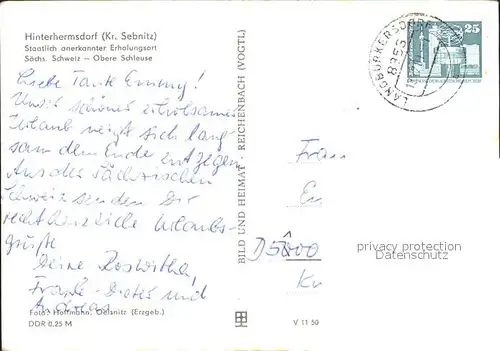 Hinterhermsdorf (Kr. Sebnitz)
Staatlich anerkannter Erholungsort
Sächs. Schweiz – Obere Schleuse
Liebe Tante Emmy!
Unser schöner erholsamer
Urlaub neigt sich lang-
sam dem Ende entgegen.
Aus der Sächsischen
Schweiz senden Dir
recht herzliche Urlaubs-
grüße
Deine Roswitha,
Frank-Dieter und
Andreas
Foto: Hoffmann, Oelsnitz (Erzgeb.)
DDR 0,25 M
BILD UND HEIMAT REICHENBACH (VOGTL)
V 11 50
LANGBURKERSDORF
8353
25
Frau
D5000
privacy protection
Datenschutz